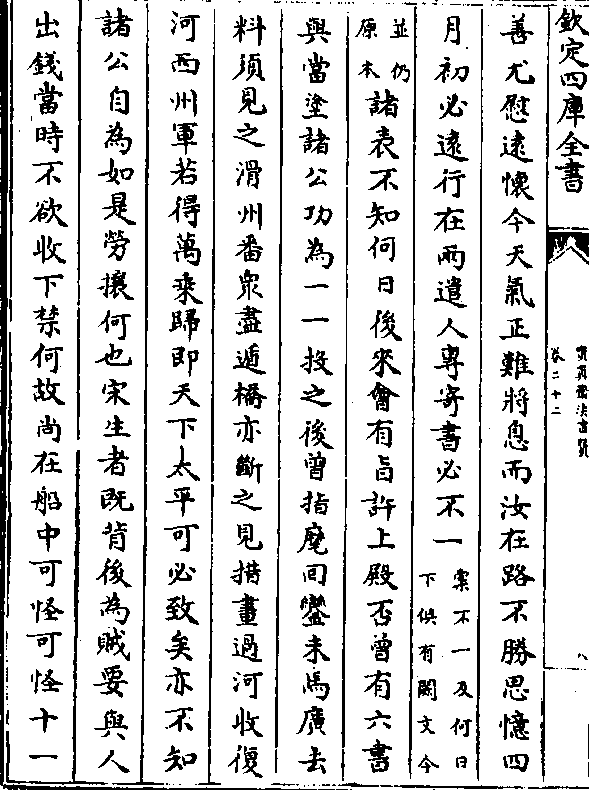 欽定四庫全書
卷二十二
善尤慰遠懷今天氣正難將息而汝在路不勝思憶四
月初必遠行在兩遣人專寄書必不一案不一及何日下俱有闕文今
並仍原本諸表不知何日後來會有旨許上殿否曾有六書
與當塗諸公功為一一投之後曾指麾回鑾未馬廣去
料須見之滑州番衆盡遁橋亦斷之見措畫過河收復
河西州軍若得萬乘歸即天下太平可必致矣亦不知
諸公自為如是勞攘何也宋生者既背後為賊要與人
出錢當時不欲收下禁何故尚在船中可怪可怪十一